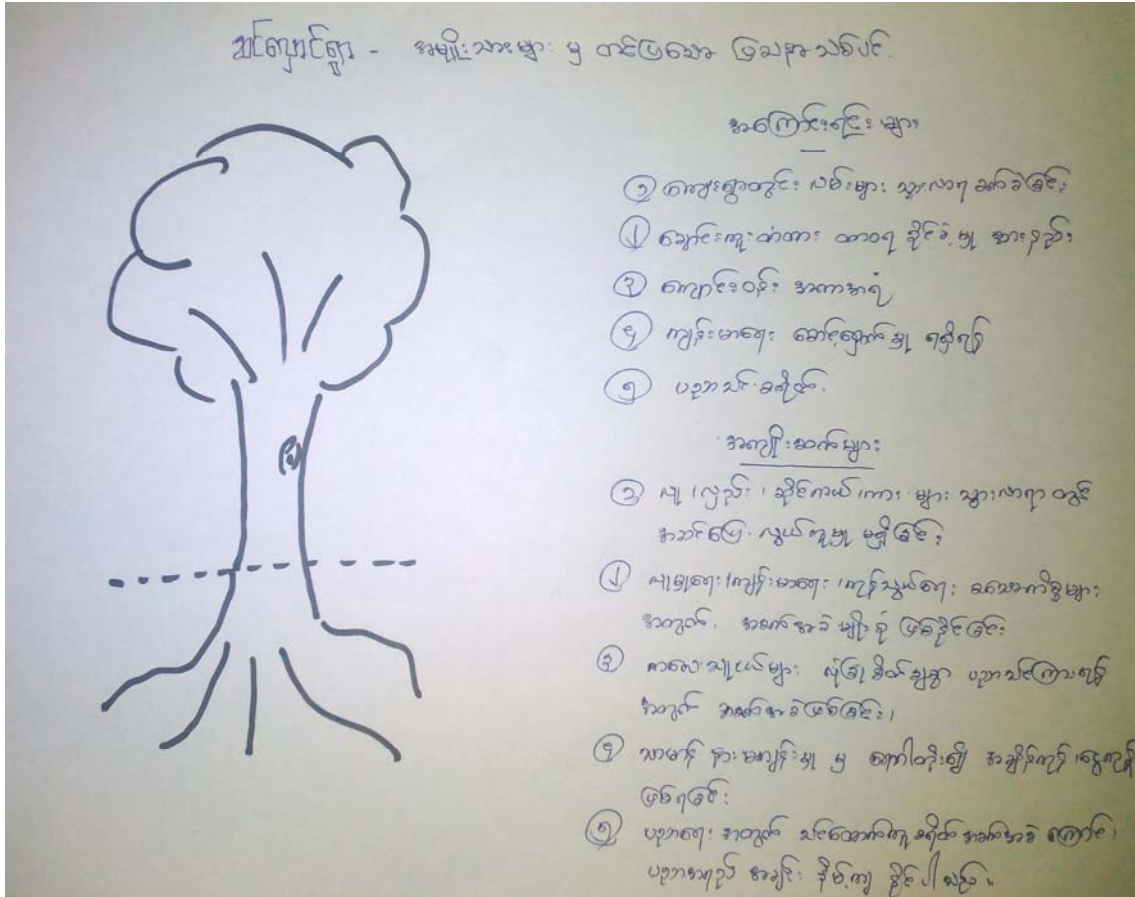 ဆင်လှောင်ရွာ - အမျိုးသားများ မှ တင်ပြသော ပြဿနာ သစ်ပင်.
အကြောင်းရင်းများ
၁ ကျေးရွာတွင်း လမ်းများ သွားလာရ ခက်ခဲခြင်း
၂ ချောင်းကူးတံတား ထာဝရ ခိုင်ခံ့မှု အားနည်း
၃ ကျောင်းဝန်း အကာအရံ
၄ ကျန်းမာရေး စောင့်ရှောက်မှု ရရှိရန်
၅ ပညာသင်စရိတ်.
အကျိုးဆက်များ
၁ လူ၊လှည်း၊ ဆိုင်ကယ်၊ကား များ သွားလာရာတွင်
အဆင်ပြေ လွယ်ကူမှု မရှိခြင်း
၂ လူမှုရေး၊ကျန်းမာရေး၊ကုန်သွယ်ရေး စသောကိစ္စများ
အတွက်. အခက်အခဲ မျိုးစုံ ဖြစ်နိုင်ခြင်း
၃ ကလေးသူငယ်များ လုံခြုံစိတ်ချစွာ ပညာသင်ကြားရန်
အတွက် အခက်အခဲဖြစ်ခြင်း၊
၄ သာမာန် နားမကျန်းမှု မှ ရောဂါတိုး၍ အချိန်ကုန်၊ငွေကုန်
ဖြစ်ရခြင်း
၅ ပညာရေး အတွက် သင်ထောက်ကူစရိတ်အခက်အခဲ ကြောင့်၊
ပညာအရည် အချင်း နိမ့်ကျ နိုင်ပါသည်။